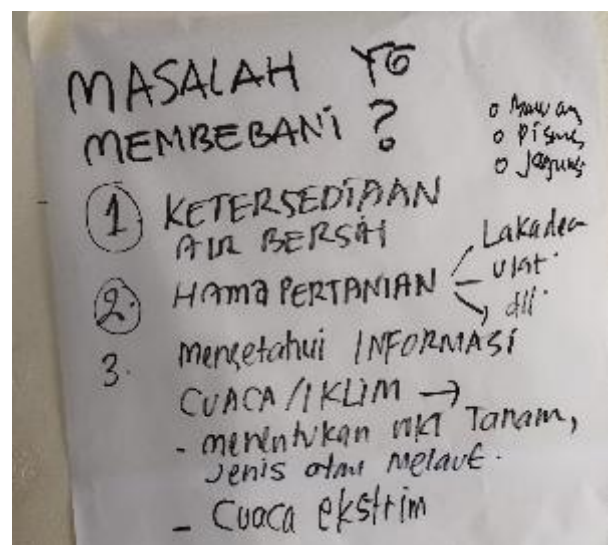 MASALAH YG
MEMBEBANI ?
o Bawang
o Pisang
o Jagung
1 KETERSEDIAAN
AIR BERSIH
2. HAMA PERTANIAN
Lakadea
ulat.
dll.
3. mengetahui INFORMASI
CUACA/IKLIM →
- menentukan wkt Tanam,
Jenis atau Melaut.
- Cuaca ekstrim